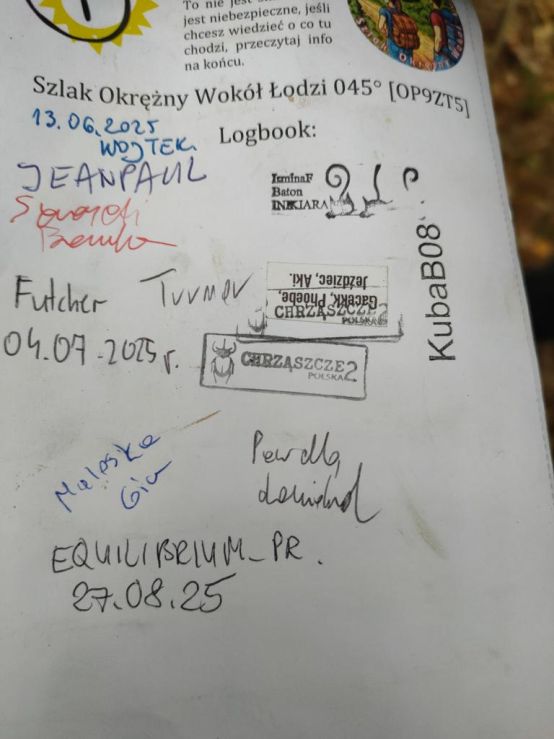 jest niebezpieczne, jeśli
chcesz wiedzieć o co tu
chodzi, przeczytaj info
na końcu.
Szlak Okrężny Wokół Łodzi 045° [OP9ZT5]
13.06.2025
WOJTEK.
Logbook:
JEANPAUL
IzminaF
Baton
INKIARA
KubaB08
Futcher
Turner
Gacekk, Phoebe,
Jeździec, Aki.
CHRZĄSZCZE2
POLSKA
04.07.2025r.
CHRZĄSZCZE2
POLSKA
Maleska
Gia
EQUILIBRIUM_PR.
27.08.25